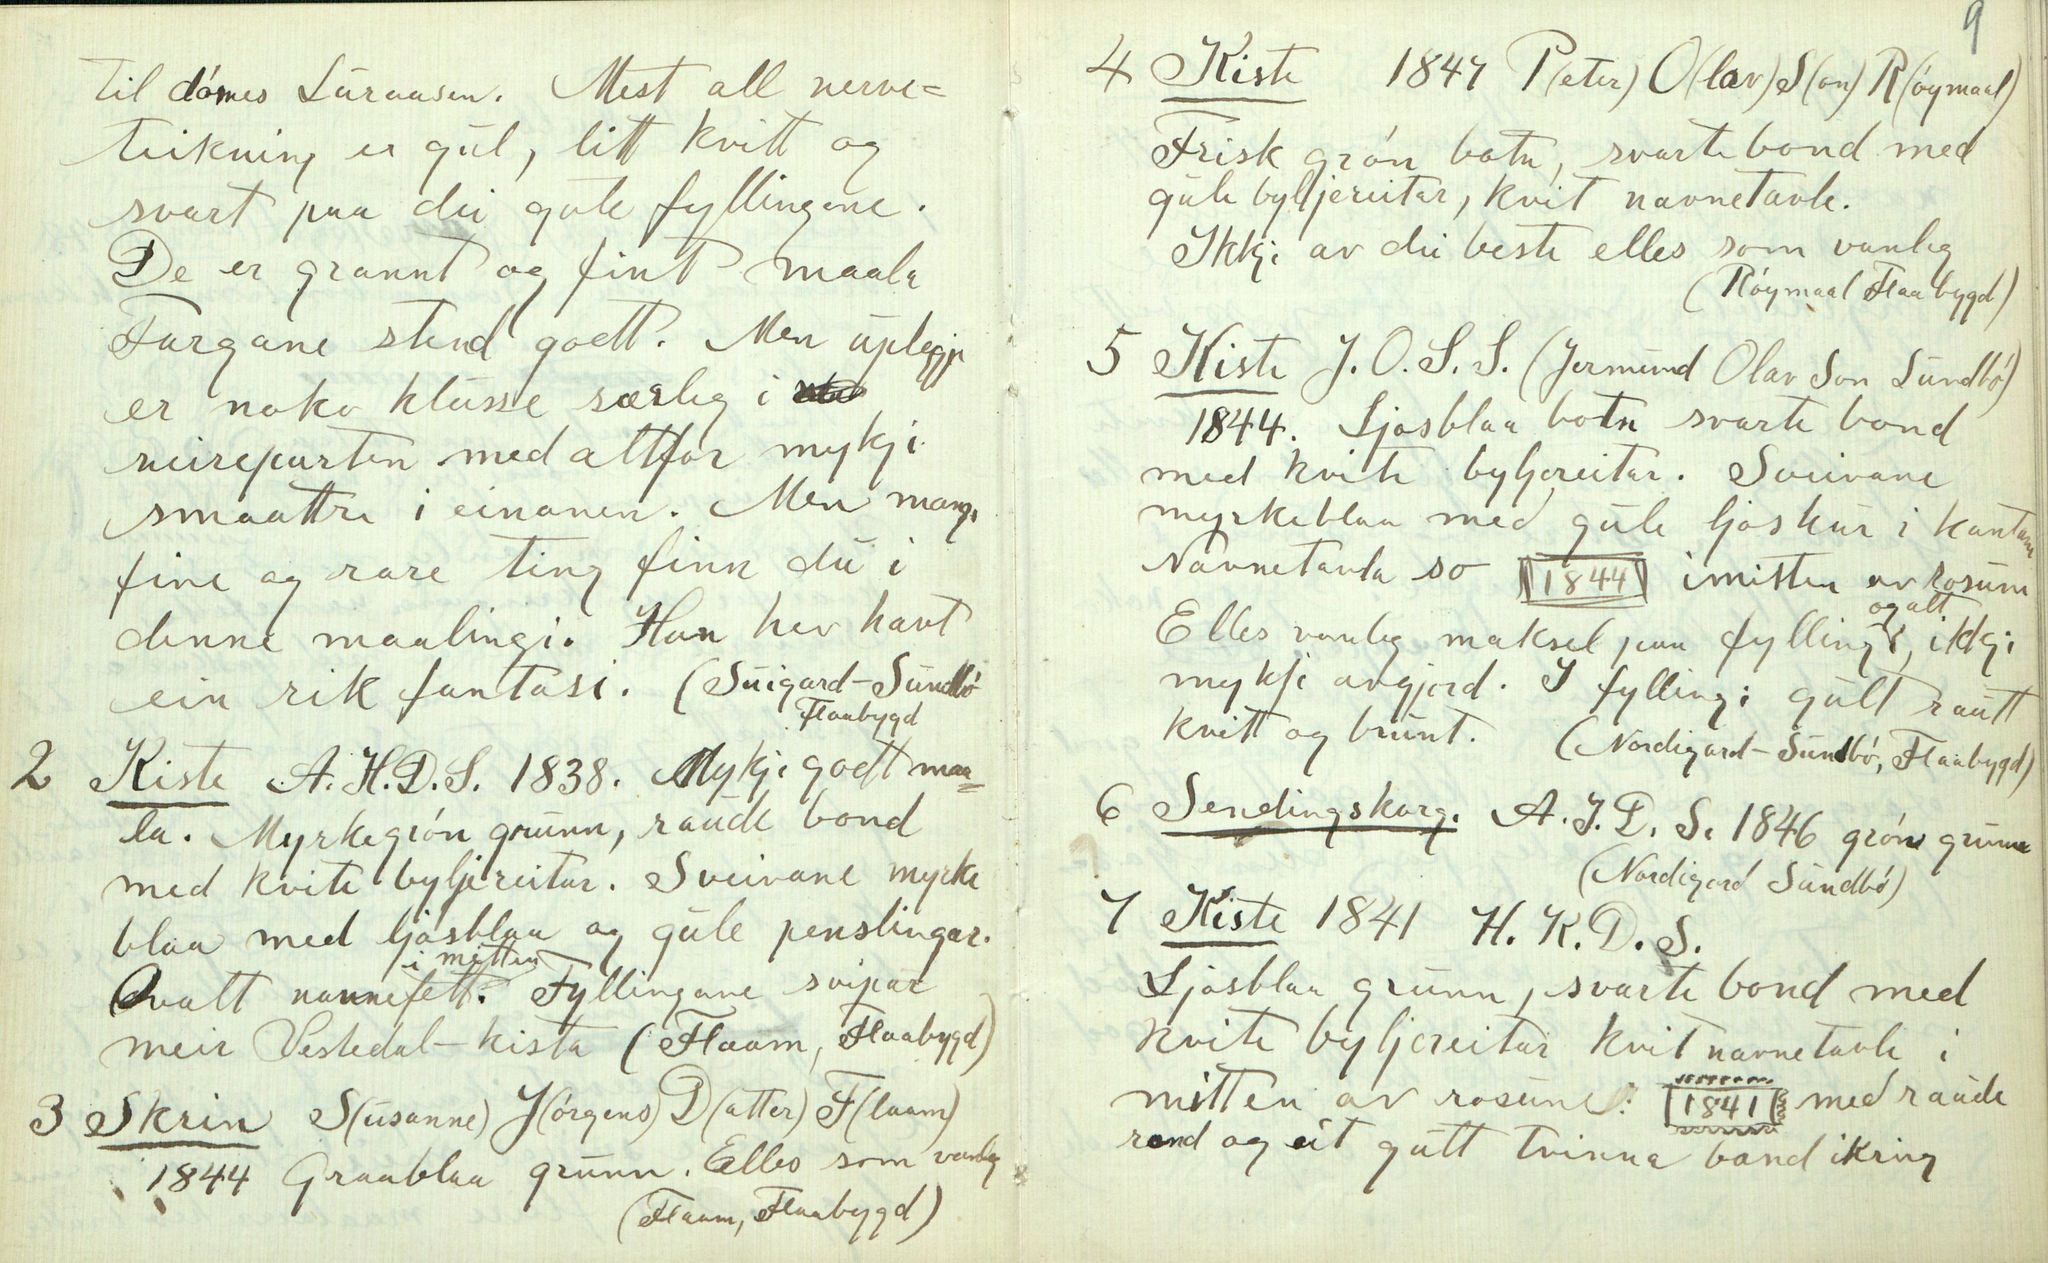 til dómes Luraasen. Mest all nerve=
teikning er gul, litt kvitt og
svart paa dei gule fyllingane.
De er grannt og fint maala
Fargane stend godt. Men uplegje
er noko klusse særleg i
neireparten med altfor mykji
smaattri i einanen. Men mange
fine og rare ting finn du i
denne maalingi. Han hev havt
ein rik fantasi. (Suigard-Sundbó
Flaabygd
2 Kiste A.H.D.S. 1838. Mykji godt maa=
la. Myrkegrón grunn, raude bond
med kvite byljereitar. Sveivane myrke
blaa med ljosblaa og gule penslingar.
i mitten
Ovalt navnefelt. Fyllingane svipar
meir Vestedal-kista (Flaam, Flaabygd)
3 Skrin S(usanne) J(órgens) D(atter) F(laam)
1844 Graablaa grunn. Elles som vanleg
(Flaam, Flaabygd)
9
4 Kiste 1847 P(eter) O(lav) S(on) R(óymaal)
Frisk grón botn, svarte bond med
gule byljereitar, kvit navnetavle.
Ikkji av dei beste elles som vanleg
(Róymaal Flaabygd)
5 Kiste J.O.S.S. (Jermund Olav Son Sundbó)
1844. Ljosblaa botn svarte bond
med kvite byljereitar. Sveivane
myrkeblaa med gule ljoskur i kantane
Navnetavla so 1844 i mitten av rosune
og alt
Elles vanleg maksel paa fyllingi, ikkji
mykji avgjord. I fyllingi gult rautt
kvitt og brunt. (Nordigard-Sundbó, Flaabygd)
6 Sendingskorg. A.J.D.S. 1846 grón grunn
(Nordigard Sundbó)
7 Kiste 1841 H.K.D.S.
Ljosblaa grunn, svarte bond med
kvite byljereitar kvit navnetavle i
mitten av rosune: 1841 med raude
rand og eit gult tvinna band ikring